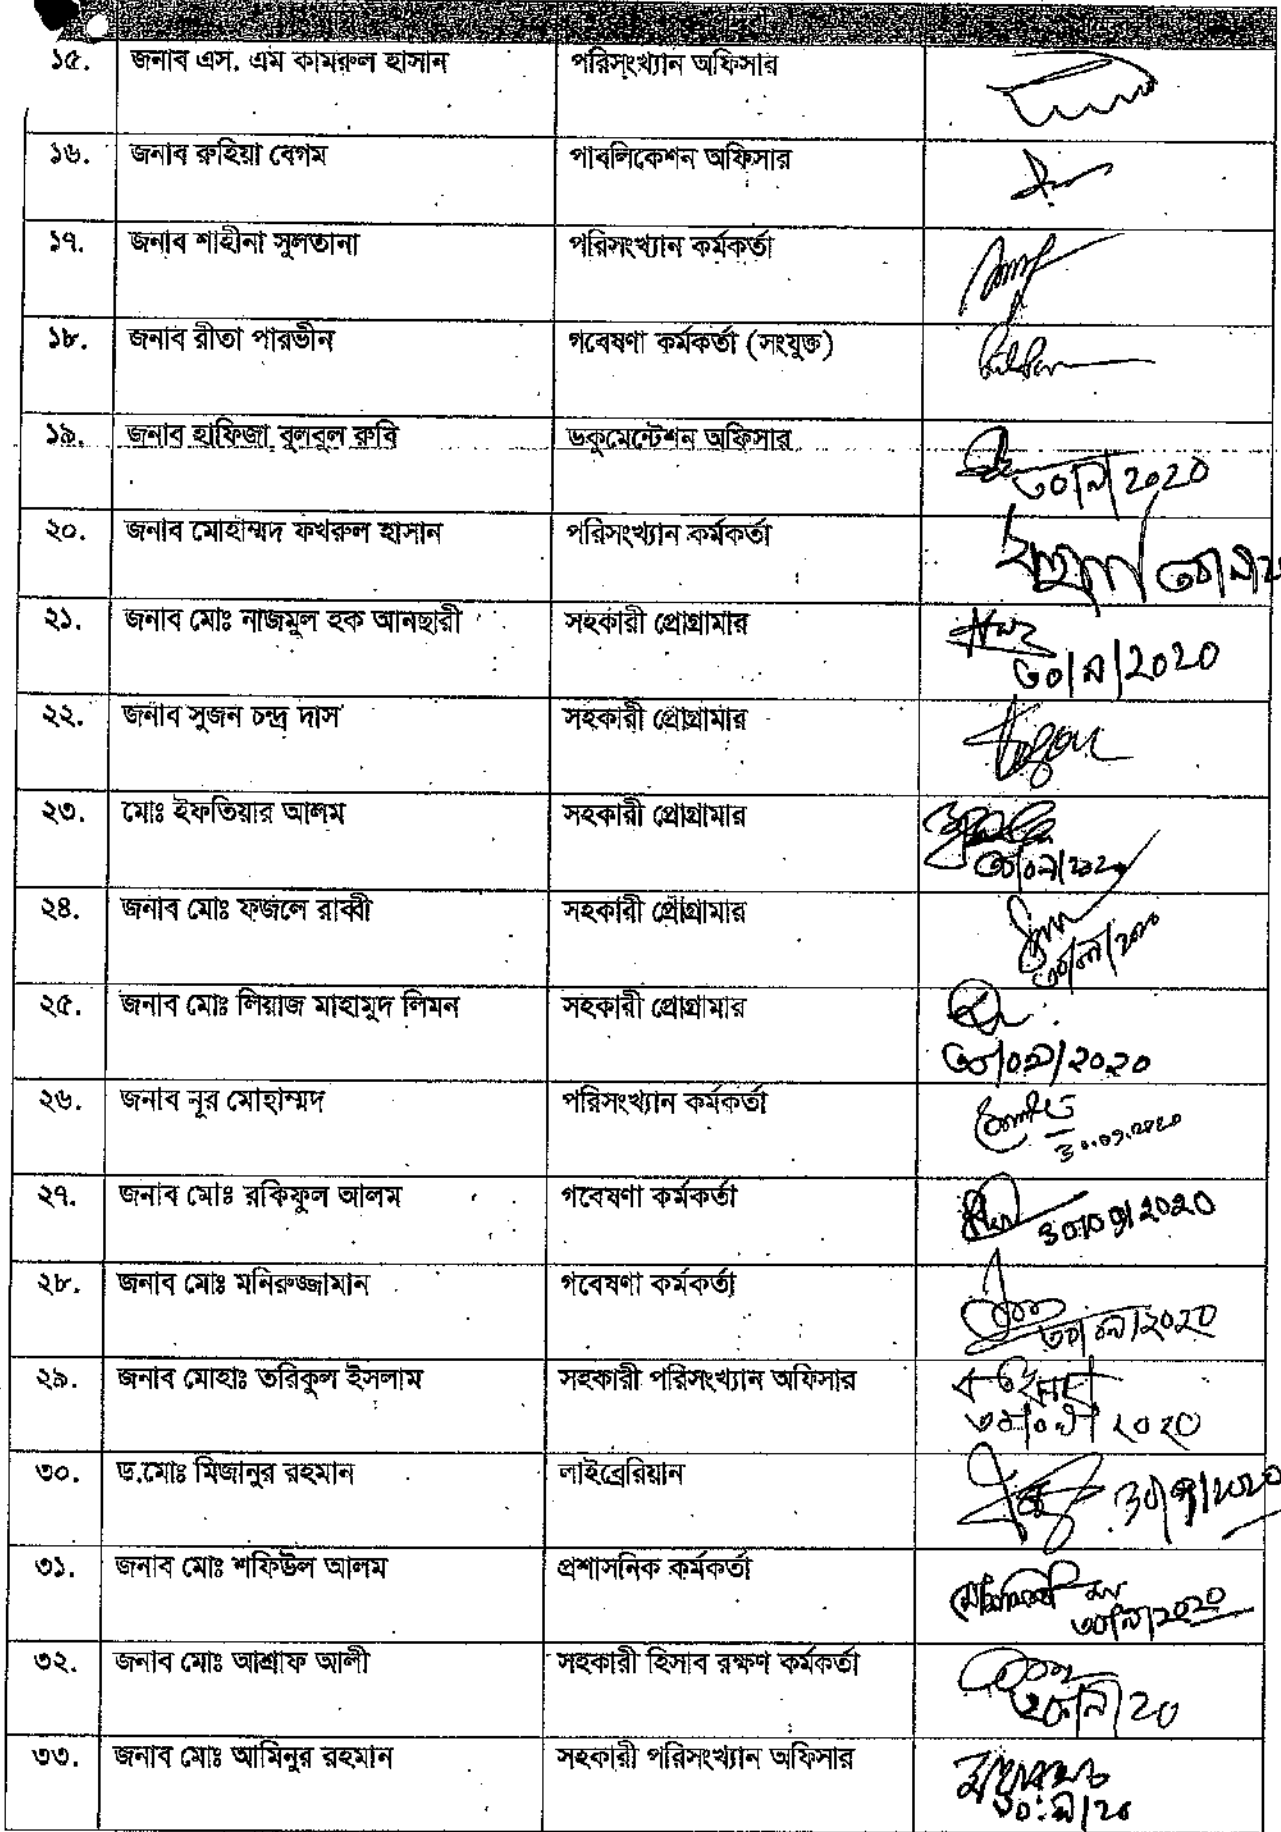 ১৫. জনাব এস. এম কামরুল হাসান পরিসংখ্যান অফিসার
১৬. জনাব রুহিয়া বেগম পাবলিকেশন অফিসার
১৭. জনাব শাহীনা সুলতানা পরিসংখ্যান কর্মকর্তা
১৮. জনাব রীতা পারভীন গবেষণা কর্মকর্তা (সংযুক্ত)
১৯. জনাব হাফিজা বুলবুল রুবি ডকুমেন্টেশন অফিসার
৩০/৯/২০২০
২০. জনাব মোহাম্মদ ফখরুল হাসান পরিসংখ্যান কর্মকর্তা
২১. জনাব মোঃ নাজমুল হক আনছারী সহকারী প্রোগ্রামার
৩০/৯/২০২০
২২. জনাব সুজন চন্দ্র দাস সহকারী প্রোগ্রামার
২৩. মোঃ ইফতিয়ার আলম সহকারী প্রোগ্রামার
২৪. জনাব মোঃ ফজলে রাব্বী সহকারী প্রোগ্রামার
২৫. জনাব মোঃ লিয়াজ মাহামুদ লিমন সহকারী প্রোগ্রামার
৩০/০৯/২০২০
২৬. জনাব নূর মোহাম্মদ পরিসংখ্যান কর্মকর্তা
30.09.2020
২৭. জনাব মোঃ রকিফুল আলম গবেষণা কর্মকর্তা
30/09/2020
২৮. জনাব মোঃ মনিরুজ্জামান গবেষণা কর্মকর্তা
৩০/০৯/২০২০
২৯. জনাব মোহাঃ তরিকুল ইসলাম সহকারী পরিসংখ্যান অফিসার
৩০/০৯/২০২০
৩০. ড.মোঃ মিজানুর রহমান লাইব্রেরিয়ান
৩১. জনাব মোঃ শফিউল আলম প্রশাসনিক কর্মকর্তা
৩০/৯/২০২০
৩২. জনাব মোঃ আশ্রাফ আলী সহকারী হিসাব রক্ষণ কর্মকর্তা
৩৩. জনাব মোঃ আমিনুর রহমান সহকারী পরিসংখ্যান অফিসার